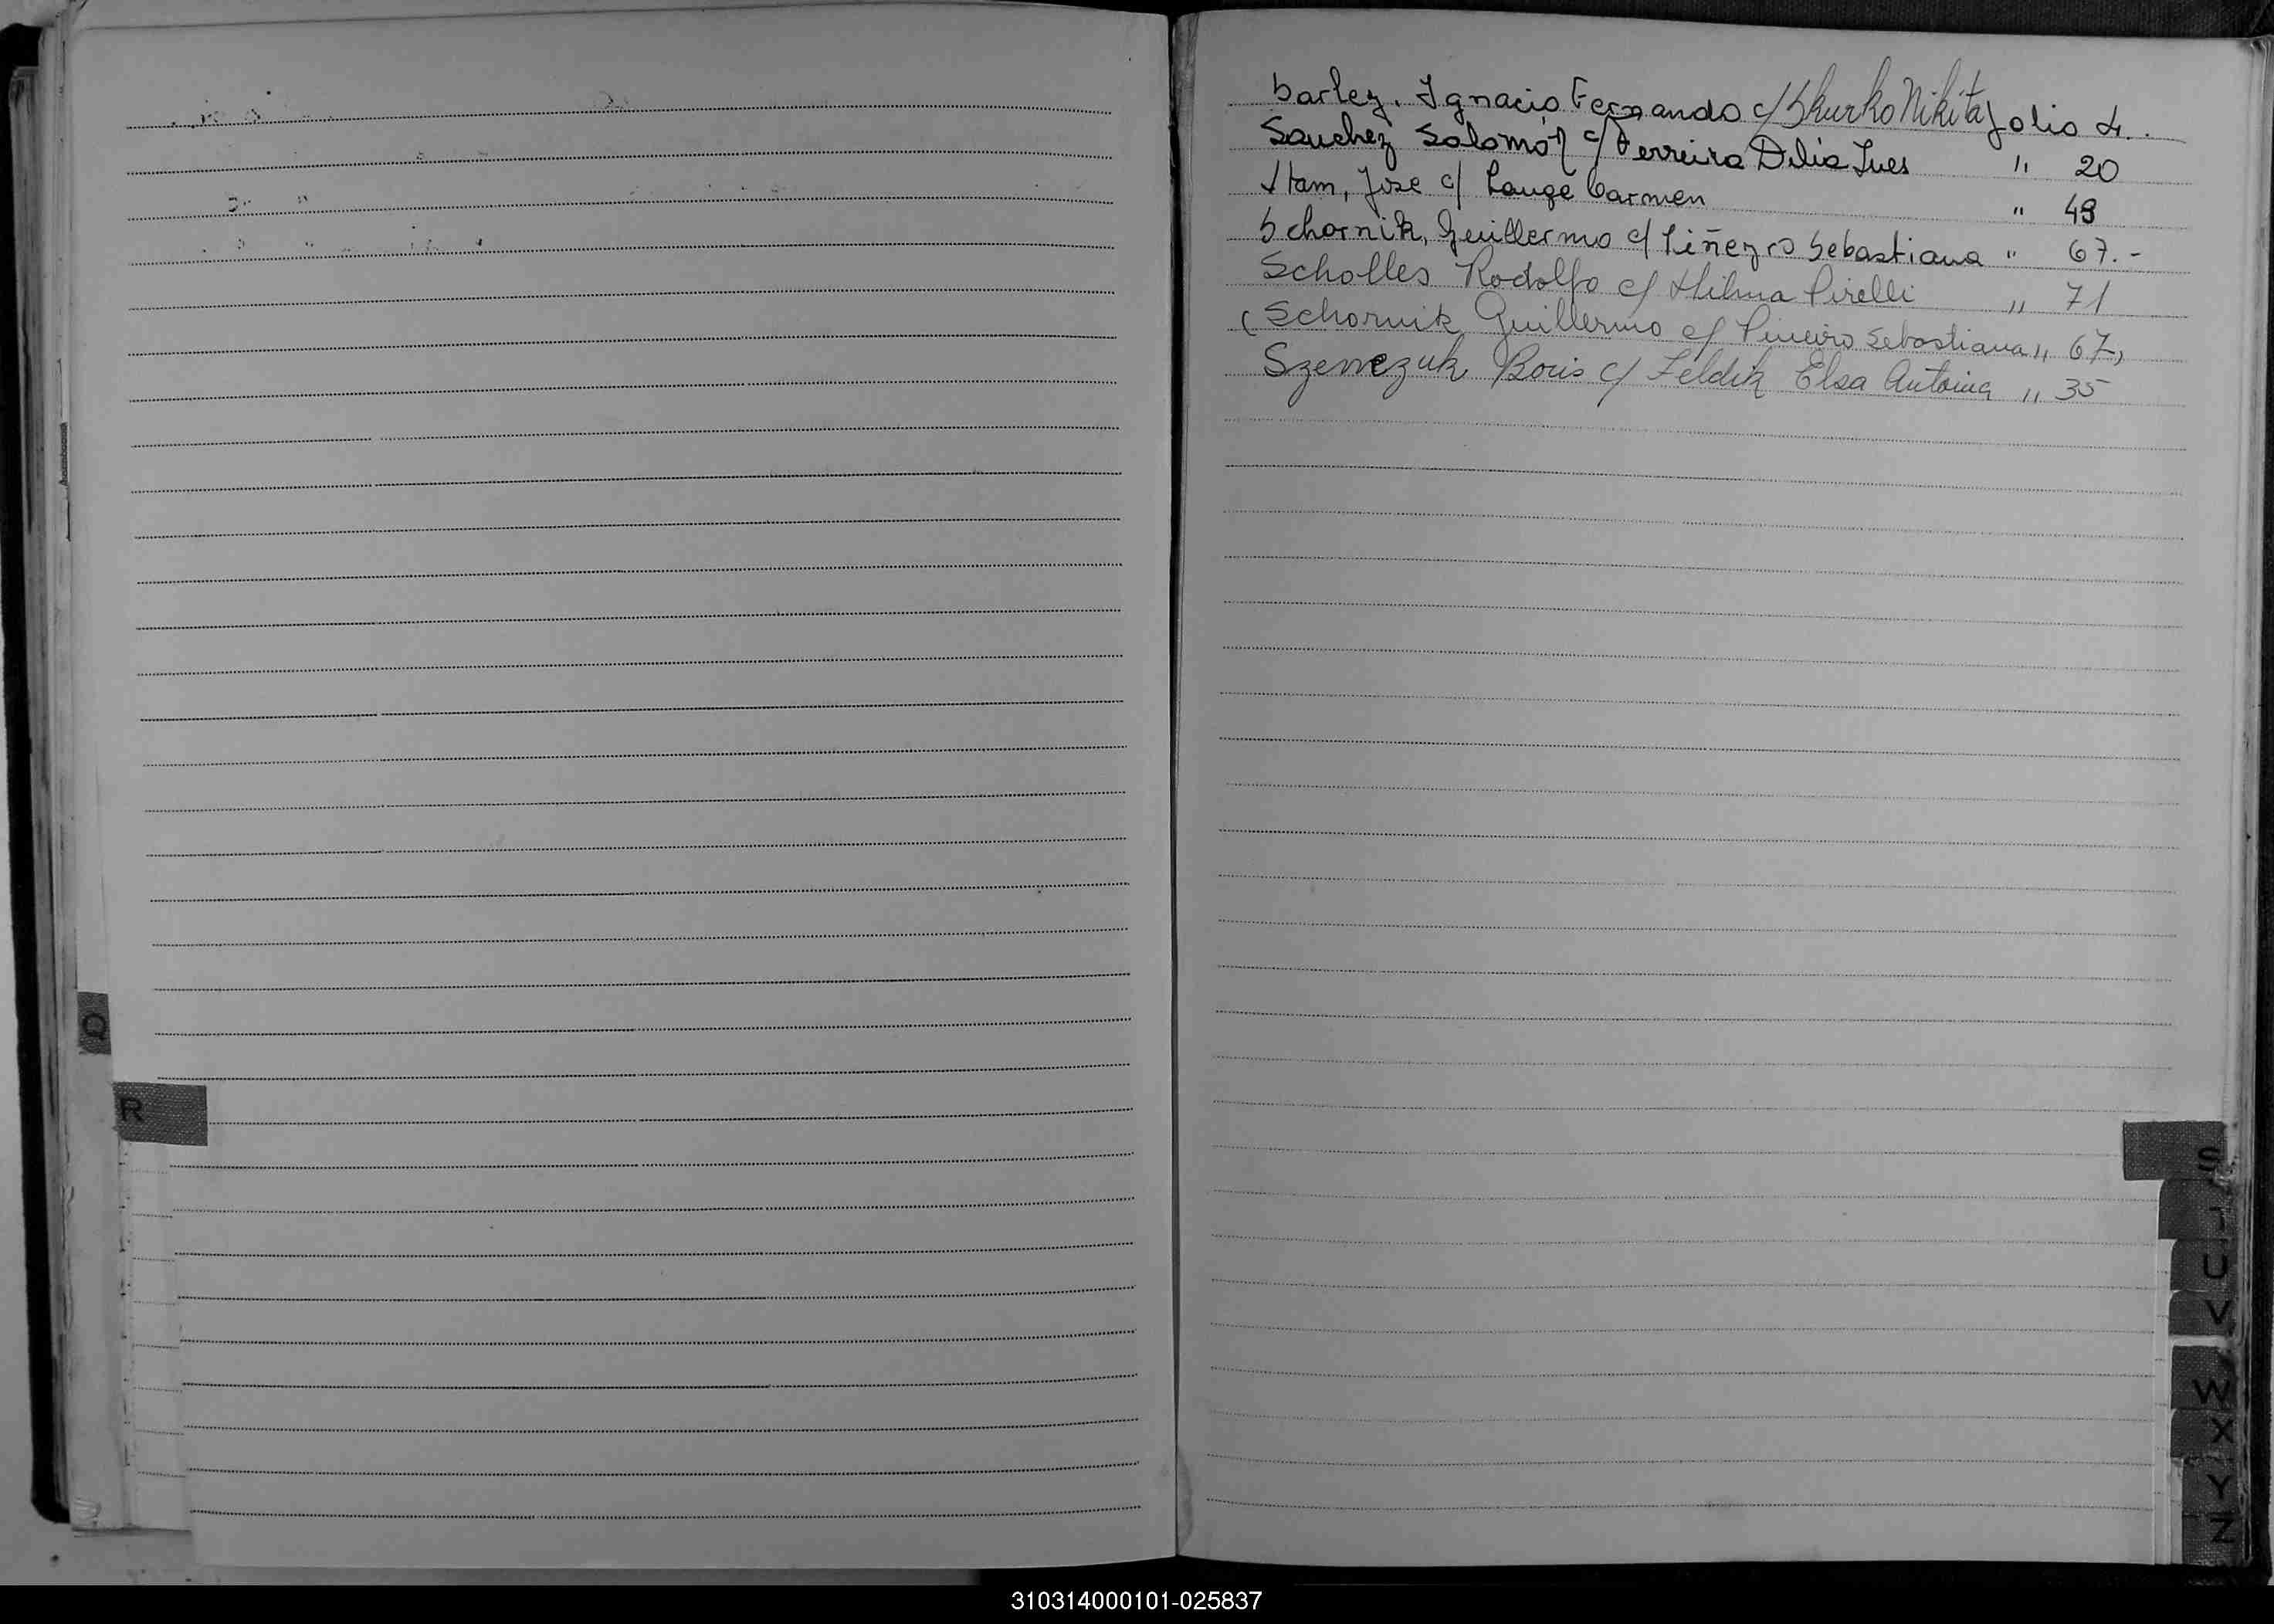 Sarlez, Ignacio Fernando c/ Skurko Nikita folio 4.
Sanchez Salomón c/ Ferreira Delia Ines " 20
Stam, Jose c/ Lange Carmen " 49
Schornik, Guillermo c/ Piñeyro Sebastiana " 67.-
Scholles Rodolfo c/ Hilma Pirelli " 71
(Schornik Guillermo c/ Pineiro Sebastiana " 67)
Szemezuk Boris c/ Feldik Elsa Antonia " 35
Q
R
S
T
U
V
W
X
Y
Z
310314000101-025837